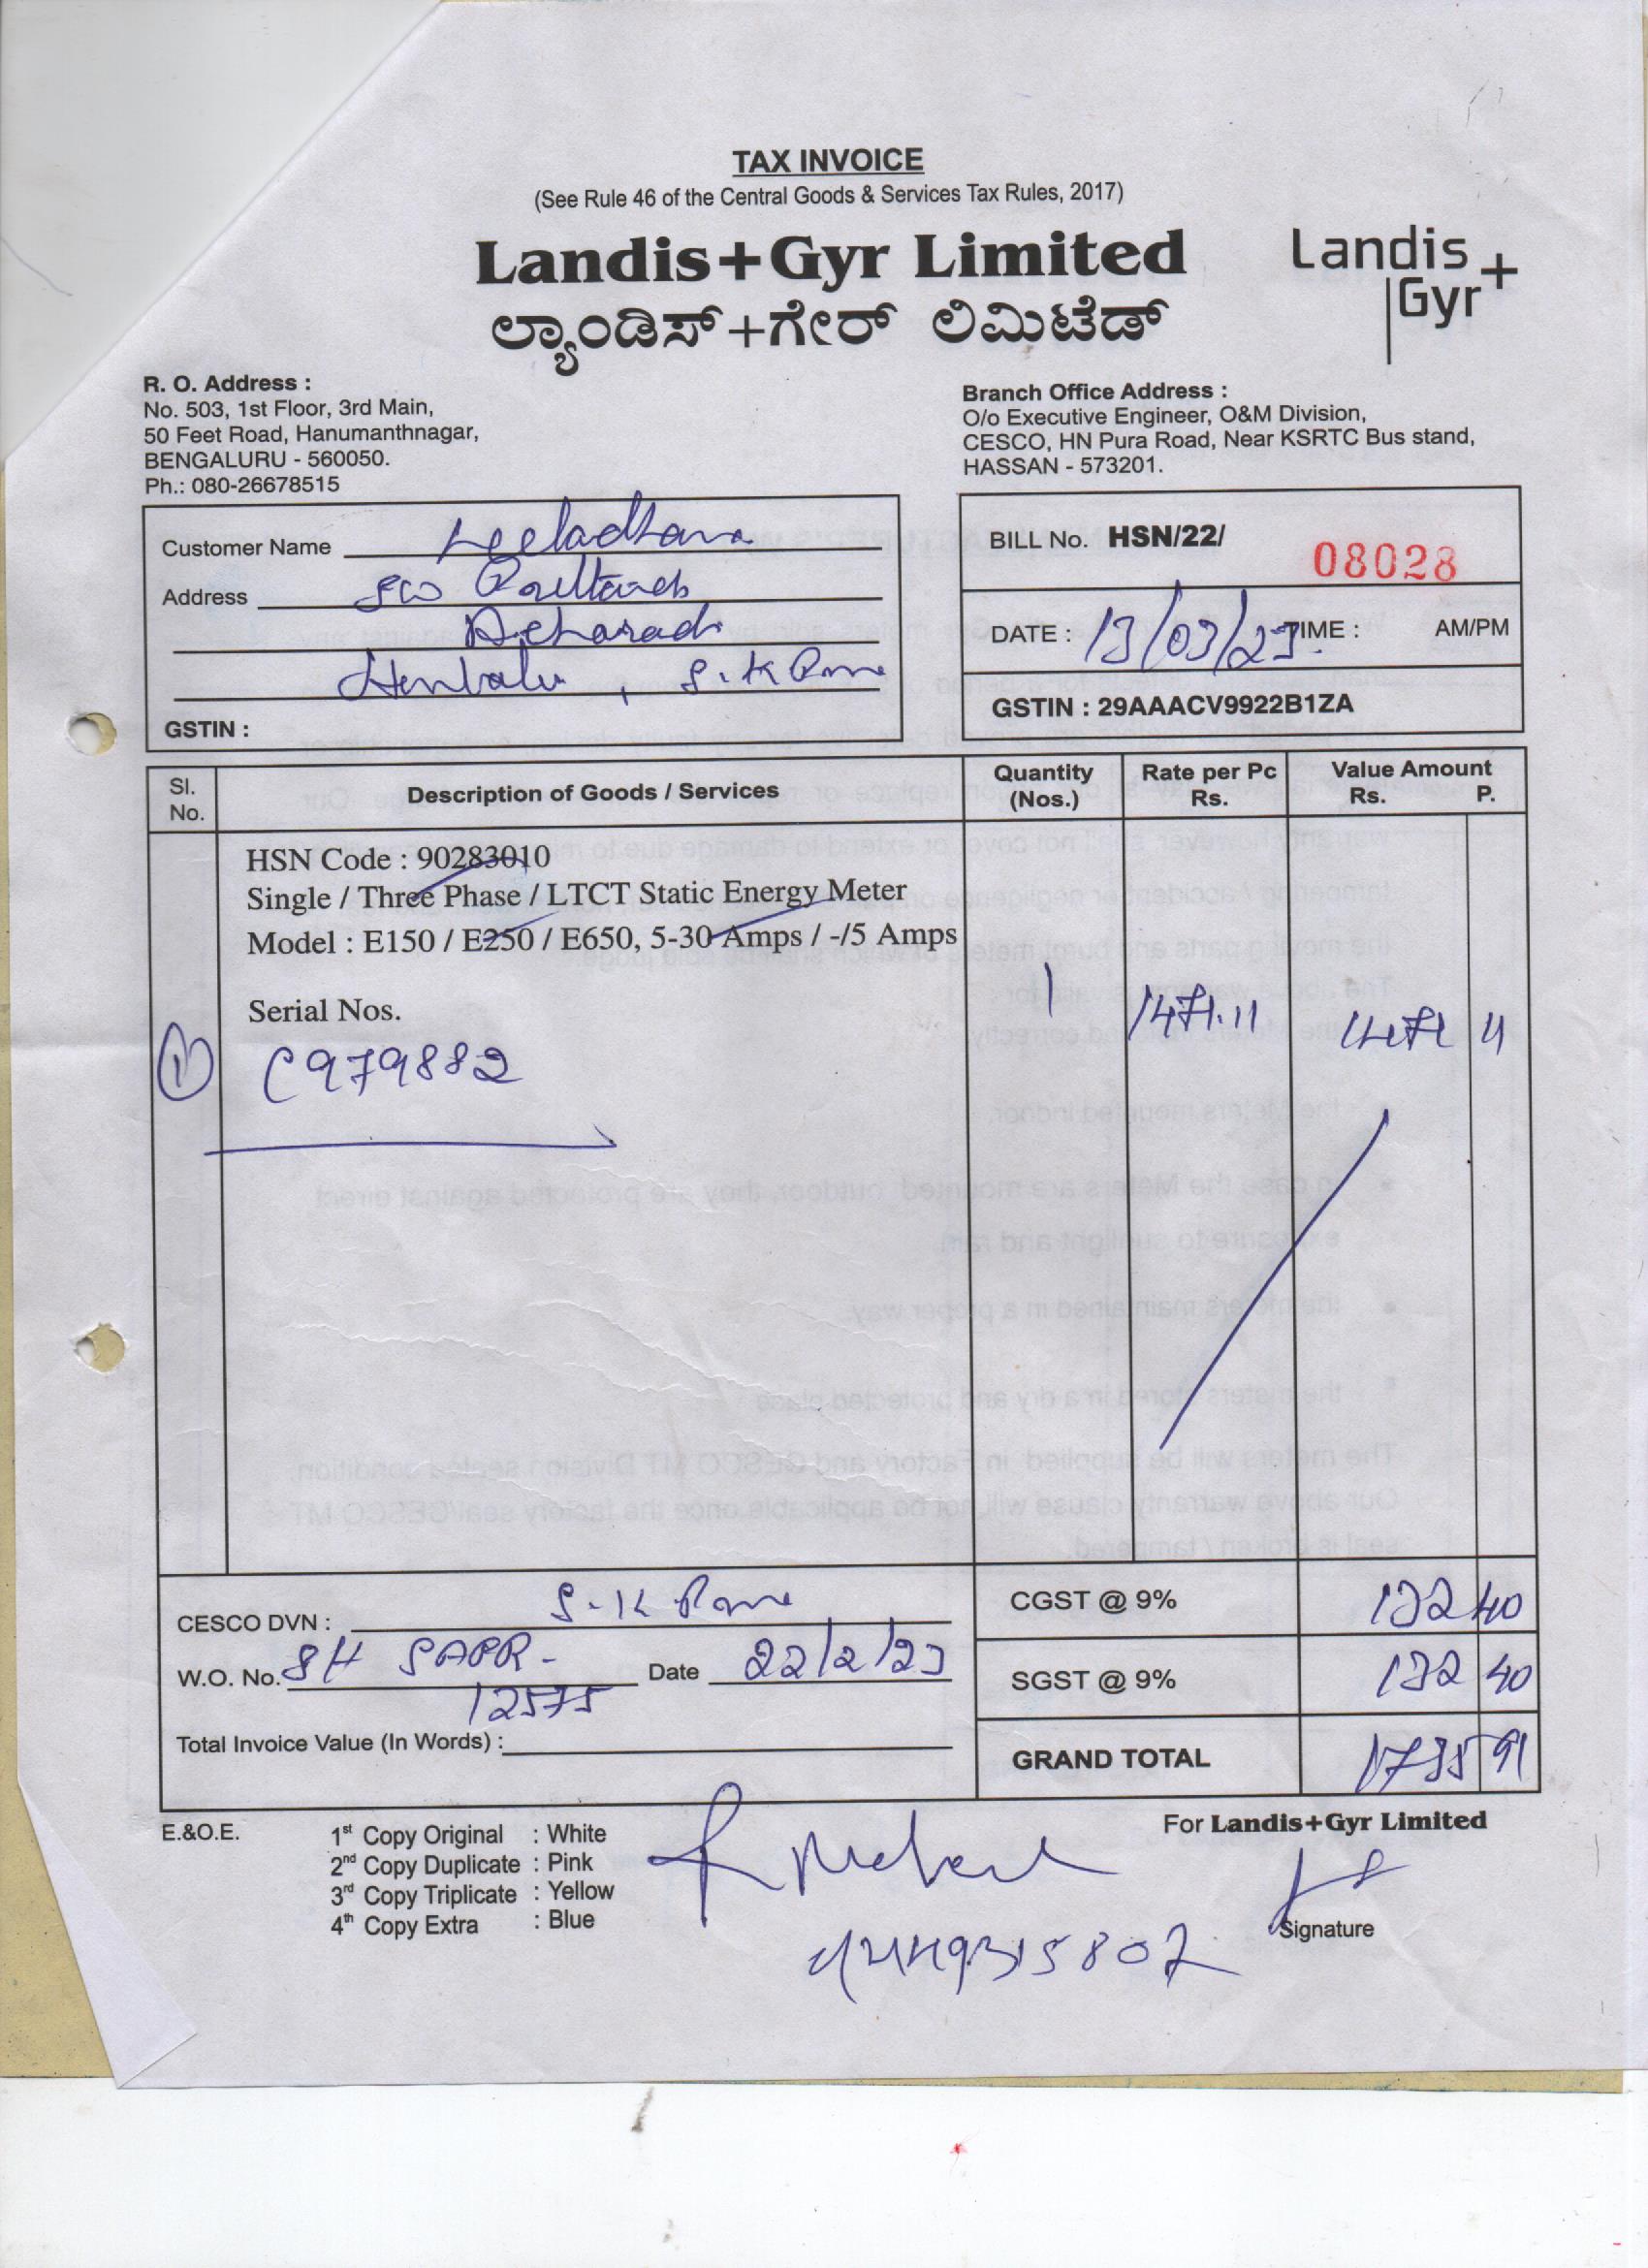 TAX INVOICE
(See Rule 46 of the Central Goods & Services Tax Rules, 2017)
Landis+Gyr Limited
ಲ್ಯಾಂಡಿಸ್+ಗೇರ್ ಲಿಮಿಟೆಡ್
Landis+
Gyr
R. O. Address :
No. 503, 1st Floor, 3rd Main,
50 Feet Road, Hanumanthnagar,
BENGALURU - 560050.
Ph.: 080-26678515
Branch Office Address :
O/o Executive Engineer, O&M Division,
CESCO, HN Pura Road, Near KSRTC Bus stand,
HASSAN - 573201.
Customer Name Leeladhara
Address S/o
S.K Pura
GSTIN :
BILL No. HSN/22/ 08028
DATE : 13/03/23 TIME : AM/PM
GSTIN : 29AAACV9922B1ZA
Sl. No. Description of Goods / Services Quantity (Nos.) Rate per Pc Rs. Value Amount Rs. P.
HSN Code : 90283010
Single / Three Phase / LTCT Static Energy Meter
Model : E150 / E250 / E650, 5-30 Amps / -/5 Amps
Serial Nos.
1 C979882 1 1471.11 1471 11
CESCO DVN : S.K Pura
W.O. No. Date 22/2/23
12575
Total Invoice Value (In Words) :
CGST @ 9% 132 40
SGST @ 9% 132 40
GRAND TOTAL 1735 91
E.&O.E.
1st Copy Original : White
2nd Copy Duplicate : Pink
3rd Copy Triplicate : Yellow
4th Copy Extra : Blue
For Landis+Gyr Limited
Signature